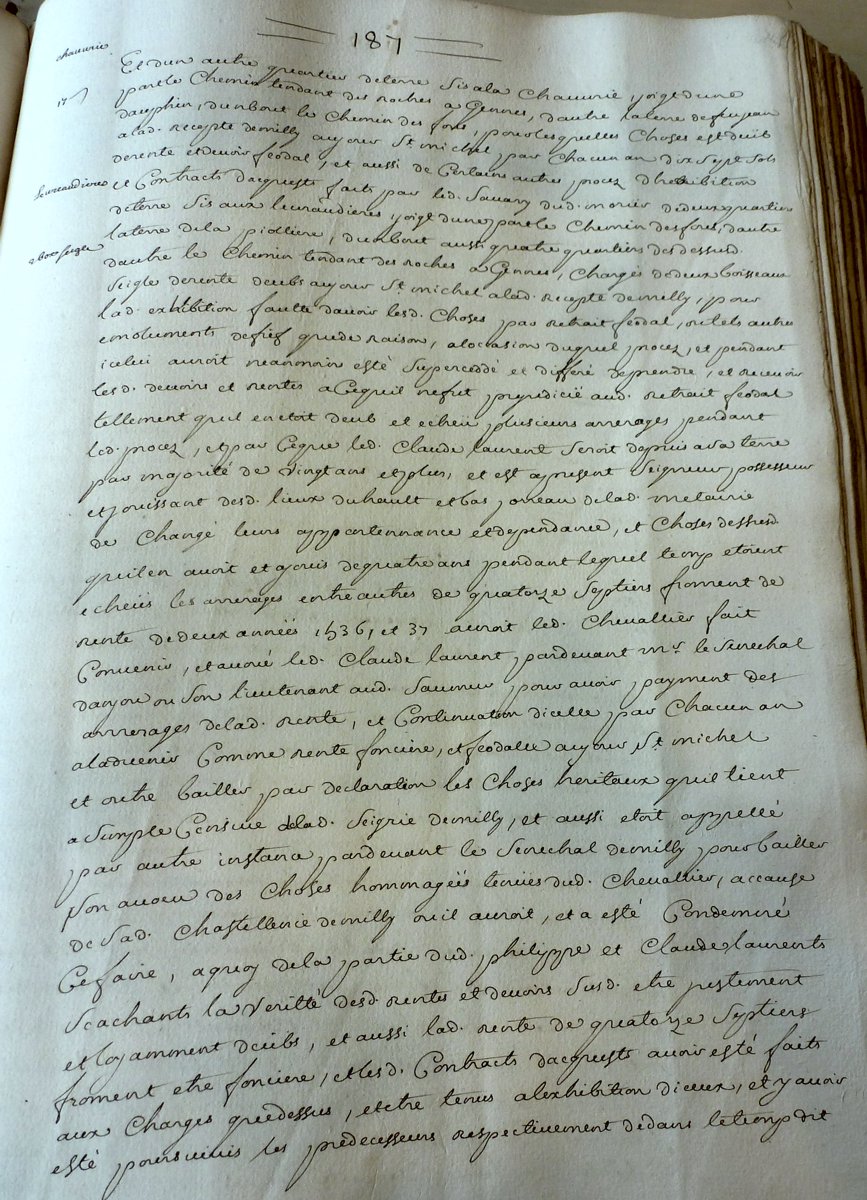 187
chauvrie
Et dun autre quartier deterre sis ala Chauvrie joigt dune
17 s
part le Chemin tendant des roches a Gennes, dautre laterre de feu jean
dauphin, dun bout le Chemin des fours, pour les quelles Choses est deub
alad. recepte demilly au jour St. michel par Chacun an dix sept sols
derente et devoir feodal, et aussi de Certains autres procez dhexibition
leureaudieres
et Contracts dacquests faits par led. Savary dud. morier dedeux quartiers
deterre sis aux leuraudieres joigt dune part le Chemin des fours, dautre
laterre dela piottiere, dun bout aussi quatre quartiers des dessusd.
2 boix seigle
dautre le Chemin tendant des roches a Gennes, Chargés dedeux boisseaux
seigle derente deubs au jour St. michel alad. recepte demilly, pour
lad. exhibition faulte davoir lesd. Choses par retrait feodal, ou lets autres
emoluments defief que de raison, aloccasion duquel procez, et pendant
icelui auroit neanmoin esté supercedé et differé deprendre, et recevoir
lesd. devoirs et rentes aCequil nefut prejudicié aud. retrait feodal
tellement quil en etoit deub et echeü plusieurs arrerages pendant
led. procez, et par Ceque led. Claude laurent seroit depuis a sa terre
par majorité de vingt ans et plus, et est apresent seigneur possesseur
et jouissant desd. lieux du hault et bas joreau delad. metairie
de Changé leurs appartennance et dependance, et Choses dessusd.
quil en avoit et a joui de quatre ans pendant lequel temp etoient
echeüs les arrerages entre autres de quatorze Septiers froment de
rente de deux annéés 1536, et 37 auroit led. Chevallier fait
Convenir, et avoié led. Claude laurent, pardevant mr. le Senechal
danjou ou Son lieutenant aud. Saumur pour avoir payment des
arrerages delad. rente, et Continuation dicelle par Chacun an
aladvenir Comme rente fonciere, et feodalle au jour St. michel
et outre bailler par declaration les Choses heritaux quil tient
a Simple Censive delad. Seigrie demilly, et aussi etoit appellé
par autre instance pardevant le Senechal demilly pour bailler
Son aveu des Choses hommagéés tenües dud. Chevallier, a cause
de Sad. Chastellenie demilly ou il auroit, et a esté Condemné
Cefaire, aquoy dela partie dud. philippe et Claude laurents
Scachants la verité desd. rentes et devoirs susd. etre justement
et loyamment deubs, et aussi lad. rente de quatorze Septiers
froment etre fonciere, et lesd. Contracts dacquests avoir esté faits
aux Charges que dessus, et etre tenus alexhibition diceux, et y avoir
esté poursuivis les predecesseurs respectivement dedans le temp dit